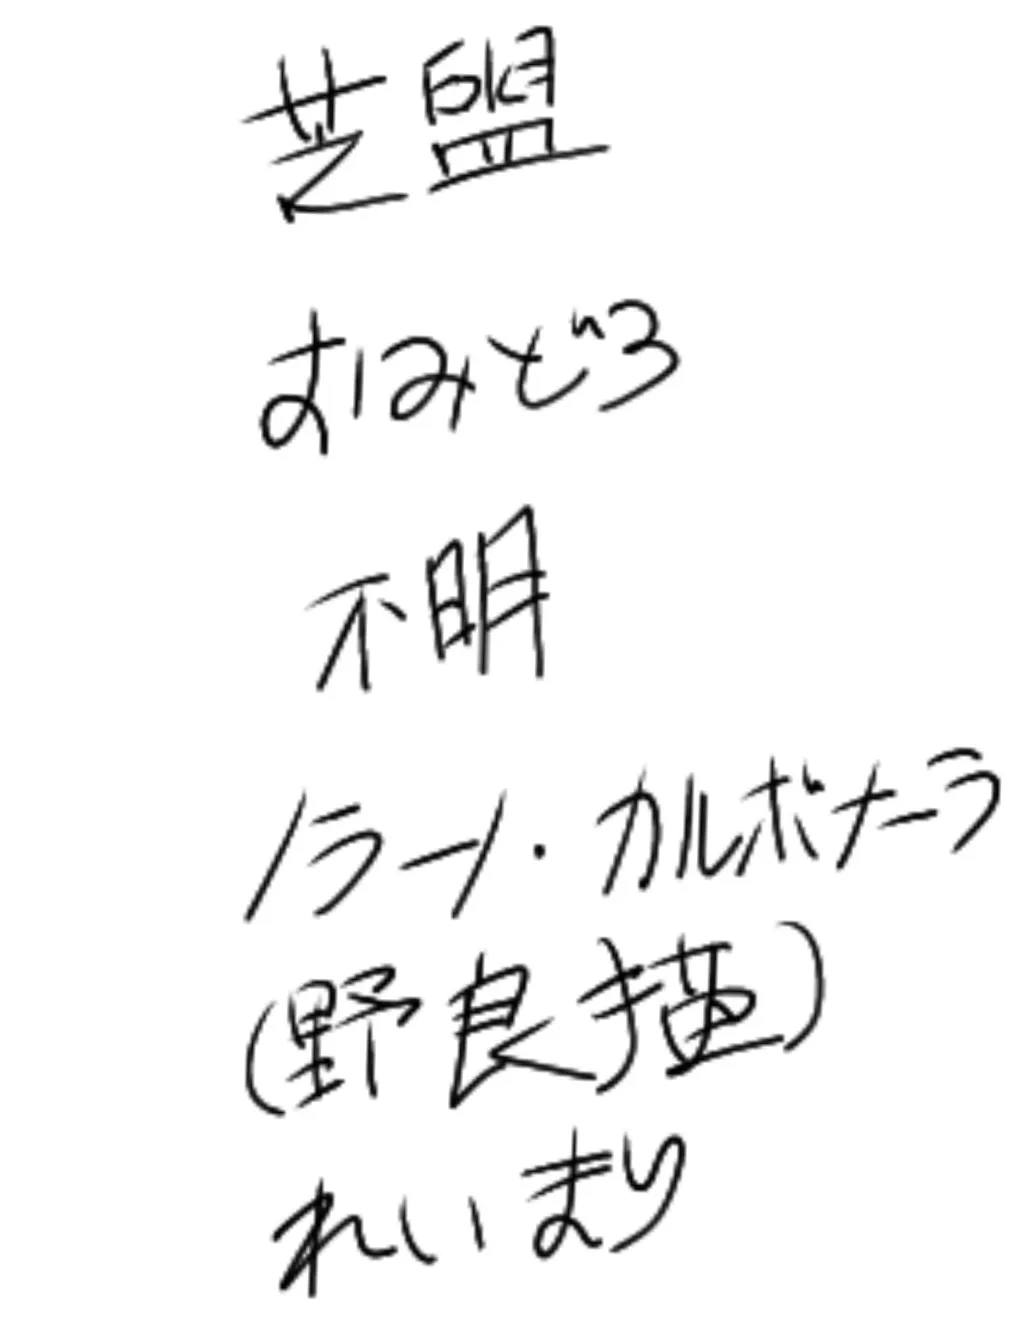 芝盟
おみどろ
不明
ノラーノ・カルボナーラ
(野良描)
れいまり